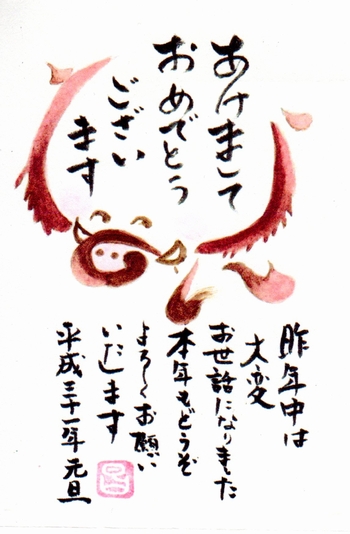 あけまして
おめでとう
ござい
ます
昨年中は
大変
お世話になりました
本年もどうぞ
よろしくお願い
いたします
平成三十一年元旦